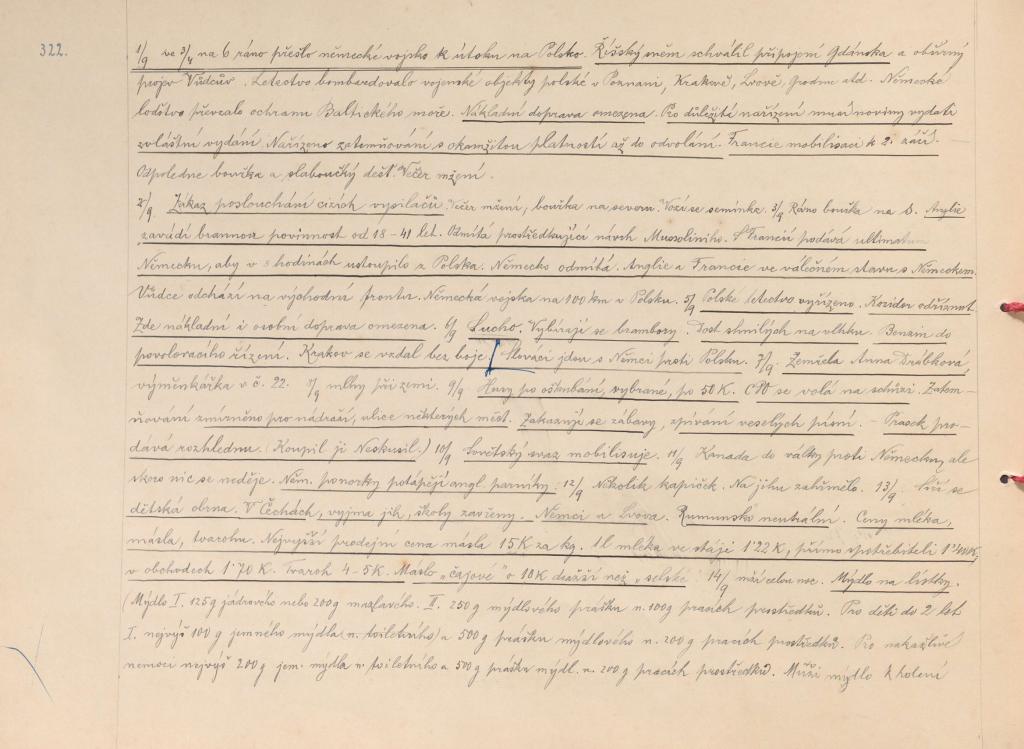 322.
1/9 ve 3/4 na 6 ráno přešlo německé vojsko k útoku na Polsko. Říšský sněm schválil připojení Gdánska a ohnivý
projev Vůdcův. Letectvo bombardovalo vojenské objekty polské v Poznani, Krakově, Lvově, Grodnu atd. Německé
loďstvo převzalo ochranu Baltického moře. Nákladní doprava omezena. Pro důležité nařízení musí noviny vydati
zvláštní vydání. Nařízeno zatemňování s okamžitou platností až do odvolání. Francie mobilisaci k 2. září.
Odpoledne bouřka a slaboučký déšť. Večer mžení.
2/9. Zákaz poslouchání cizích vysílačů. Večer mžení, bouřka na severu. Vozí se semínka. 3/9 Ráno bouřka na S. Anglie
zavádí brannou povinnost od 18-41 let. Odmítá prostředkující návrh Mussoliniho. S Francií podává ultimatum
Německu, aby v hodinách ustoupilo z Polska. Německo odmítá. Anglie a Francie ve válečném stavu s Německem.
Vůdce odchází na východní frontu. Německá vojska na 100 km v Polsku. 5/9 Polské letectvo vyřízeno. Koridor odříznut.
Zde nákladní i osobní doprava omezena. 6/9 Sucho. Vybírají se brambory. Dost shnilých na vlhku. Benzin do
povolovacího řízení. Krakov se vzdal bez boje. Slováci jdou s Němci proti Polsku. 7/9. Zemřela Anna Drábková,
výměnkářka v č. 22. 8/9 mlhy při zemi. 9/9 Husy po oškubání, vybrané, po 50 K. CPO se volá na schůzi. Zatem-
ňování zmírněno pro nádraží, ulice některých měst. Zakazují se zábavy, zpívání veselých písní. - Prasek pro-
dává rozhlednu. (Koupil ji Neskusil.) 10/9 Sovětský svaz mobilisuje. 11/9 Kanada do války proti Německu, ale
skoro nic se neděje. Něm. ponorky potápějí angl. parníky. 12/9 Několik kapiček. Na jihu zahřmělo. 13/9. Šíří se
dětská obrna. V Čechách, vyjma jih, školy zavřeny. Němci u Lvova. Rumunsko neutrální. Ceny mléka,
másla, tvarohu. Nejvyšší prodejní cena másla 15 K za kg. 1 l mléka ve stáji 1'22 K, přímo spotřebiteli
v obchodech 1'70 K. Tvaroh 4-5 K. Máslo „čajové" o 10 K dražší než „selské". 14/9 mží celou noc. Mýdlo na lístky.
(Mýdlo I. 125 g jádrového nebo 200 g mazlavého. II. 250 g mýdlového prášku n. 100 g pracích prostředků. Pro děti do 2 let
I. nejvýš 100 g jemného mýdla (n. toiletního) a 500 g prášku mýdlového n. 200 g pracích prostředků. Pro nakažlivé
nemoci nejvýš 200 g jem. mýdla n. toiletního a 500 g prášku mýdl. n. 200 g pracích prostředků. Muži mýdlo k holení